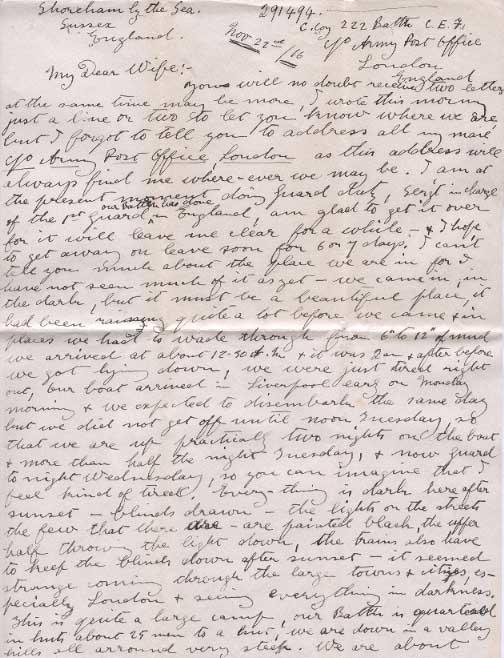 Shoreham by the Sea.
Sussex
England.
291494.
C. Coy 222 Battn C.E.F.
c/o Army Post Office
London
England
Nov 22nd /16
My Dear Wife:-
you will no doubt receive two letters
at the same time may be more, I wrote this morning
just a line or two to let you know where we are
but I forgot to tell you to address all my mail
c/o Army Post Office, London as this address will
always find me where-ever we may be. I am at
the present moment doing Guard duty, Sergt in charge
our Battn has done
of the 1st guard in England, am glad to get it over
for it will leave me clear for a while - & I hope
to get away on leave soon for 6 or 7 days. I can't
tell you much about the place we are in for I
have not seen much of it as yet - we came in, in
the dark, but it must be a beautiful place, it
had been raining quite a lot before we came & in
places we had to wade through from 6" to 12" of mud
we arrived at about 12-30 & it was 2am & after before
we got lying down, we were just tired right
out, our boat arrived in Liverpool early on Monday
morning & we expected to disembark the same day
but we did not get off until noon Tuesday, so
that we are up practically two nights on the boat
& more than half the night Tuesday, & now guard
to night Wednesday, so you can imagine that I
feel kind of tired. Every-thing is dark here after
sunset - blinds drawn - the lights on the streets
the few that there are - are painted black, the upper
half throwing the light down, the trains also have
to keep the blinds down after sunset - it seemed
strange coming through the large towns & cityes, es-
pecially London & seeing everything in darkness.
This is quite a large camp, our Battn is quartered
in huts about 25 men to a hut, we are down in a valley
hills all arround very steep. We are about